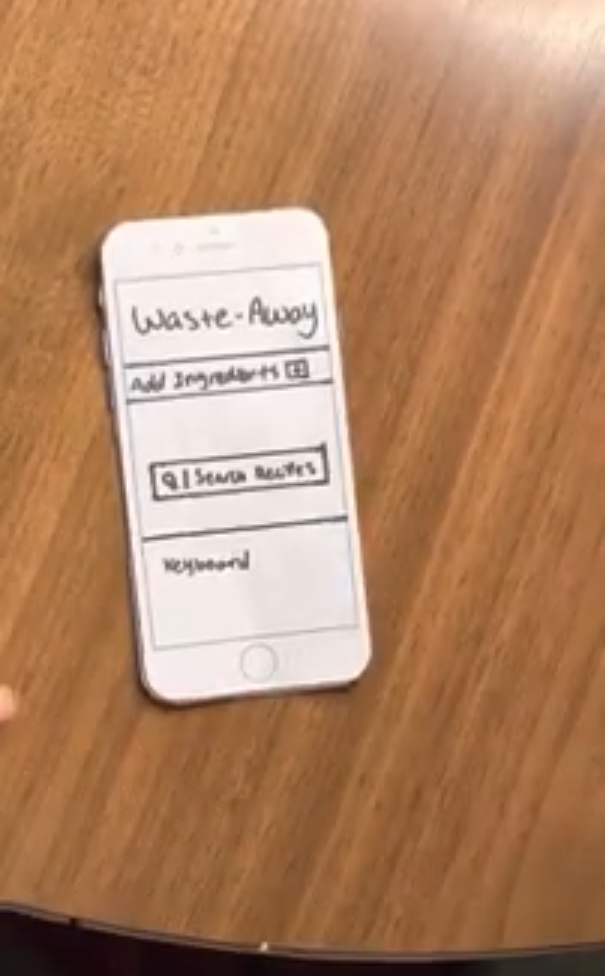 Waste-Away
Add Ingredients +
Search Recipes
Keyboard